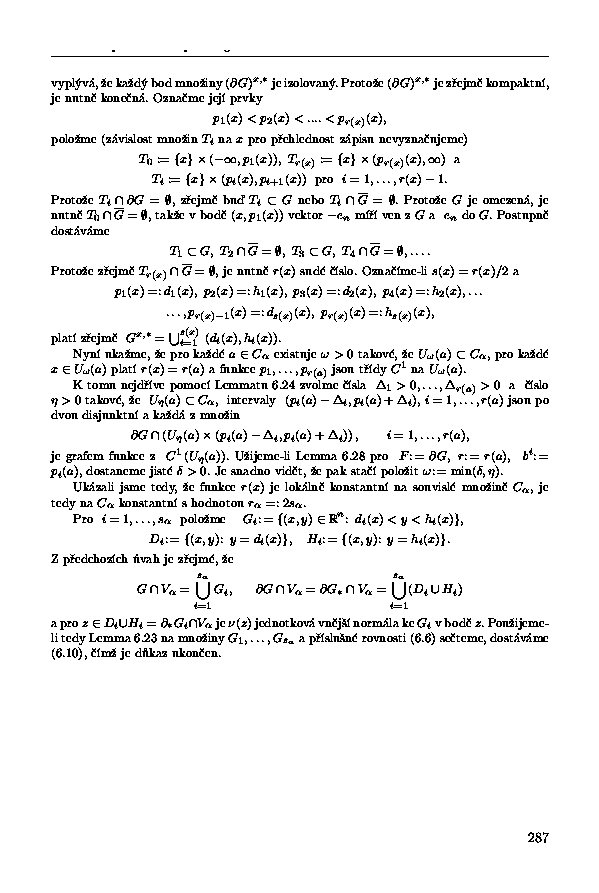 vyplývá, že každý bod množiny (∂G)^{x,*} je izolovaný. Protože (∂G)^{x,*} je zřejmě kompaktní,
je nutně konečná. Označme její prvky
p_1(x) < p_2(x) < .... < p_{r(x)}(x),
položme (závislost množin T_i na x pro přehlednost zápisu nevyznačujeme)
T_0 := {x} × (−∞, p_1(x)), T_{r(x)} := {x} × (p_{r(x)}(x), ∞) a
T_i := {x} × (p_i(x), p_{i+1}(x)) pro i = 1, . . . , r(x) − 1.
Protože T_i ∩ ∂G = ∅, zřejmě buď T_i ⊂ G nebo T_i ∩ \overline{G} = ∅. Protože G je omezená, je
nutně T_0 ∩ \overline{G} = ∅, takže v bodě (x, p_1(x)) vektor −e_n míří ven z G a e_n do G. Postupně
dostáváme
T_1 ⊂ G, T_2 ∩ \overline{G} = ∅, T_3 ⊂ G, T_4 ∩ \overline{G} = ∅, . . . .
Protože zřejmě T_{r(x)} ∩ \overline{G} = ∅, je nutně r(x) sudé číslo. Označíme-li s(x) = r(x)/2 a
p_1(x) =: d_1(x), p_2(x) =: h_1(x), p_3(x) =: d_2(x), p_4(x) =: h_2(x), . . .
. . . , p_{r(x)−1}(x) =: d_{s(x)}(x), p_{r(x)}(x) =: h_{s(x)}(x),
platí zřejmě G^{x,*} = ⋃_{i=1}^{s(x)} (d_i(x), h_i(x)).
Nyní ukažme, že pro každé a ∈ C_α existuje ω > 0 takové, že U_ω(a) ⊂ C_α, pro každé
x ∈ U_ω(a) platí r(x) = r(a) a funkce p_1, . . . , p_{r(a)} jsou třídy C^1 na U_ω(a).
K tomu nejdříve pomocí Lemmatu 6.24 zvolme čísla Δ_1 > 0, . . . , Δ_{r(a)} > 0 a číslo
η > 0 takové, že U_η(a) ⊂ C_α, intervaly (p_i(a) − Δ_i, p_i(a) + Δ_i), i = 1, . . . , r(a) jsou po
dvou disjunktní a každá z množin
∂G ∩ (U_η(a) × (p_i(a) − Δ_i, p_i(a) + Δ_i)) , i = 1, . . . , r(a),
je grafem funkce z C^1 (U_η(a)). Užijeme-li Lemma 6.28 pro F := ∂G, r := r(a), b^i :=
p_i(a), dostaneme jisté δ > 0. Je snadno vidět, že pak stačí položit ω := min(δ, η).
Ukázali jsme tedy, že funkce r(x) je lokálně konstantní na souvislé množině C_α, je
tedy na C_α konstantní s hodnotou r_α =: 2s_α.
Pro i = 1, . . . , s_α položme G_i := {(x, y) ∈ ℝ^n : d_i(x) < y < h_i(x)},
D_i := {(x, y) : y = d_i(x)}, H_i := {(x, y) : y = h_i(x)}.
Z předchozích úvah je zřejmé, že
G ∩ V_α = ⋃_{i=1}^{s_α} G_i, ∂G ∩ V_α = ∂G_* ∩ V_α = ⋃_{i=1}^{s_α} (D_i ∪ H_i)
a pro z ∈ D_i∪H_i = ∂_*G_i∩V_α je ν(z) jednotková vnější normála ke G_i v bodě z. Použijeme-
li tedy Lemma 6.23 na množiny G_1, . . . , G_{s_α} a příslušné rovnosti (6.6) sečteme, dostáváme
(6.10), čímž je důkaz ukončen.
287